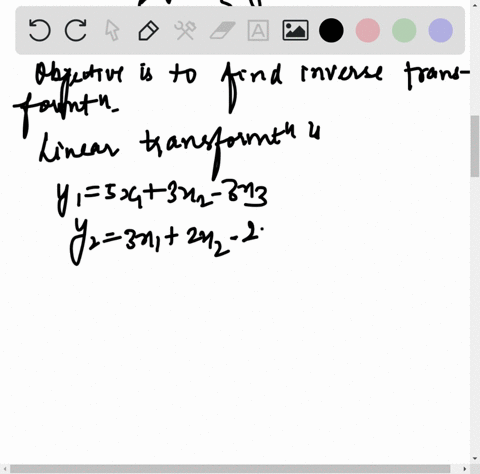 Objective is to find inverse trans-
formtⁿ.
Linear transformtⁿ is
y₁=5x₁+3x₂-3x₃
y₂=3x₁+2x₂-2